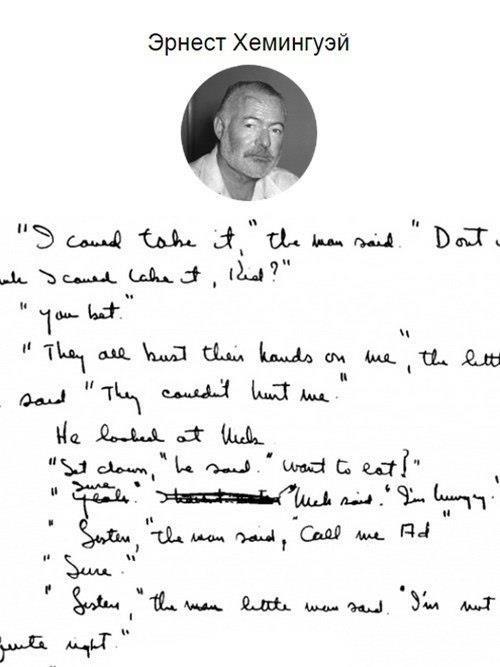 Эрнест Хемингуэй
"I could take it," the man said. "Dont
I could take it, Kid?"
"you bet."
"They all bust their hands on me", the litt
said "They couldn't hurt me."
He looked at Nick
"Sit down," he said. "want to eat?"
sure
"Yeah." Nick said. "I'm hungry."
"Listen," the man said, "Call me Ad"
"Sure."
"Listen," the man little man said. "I'm not
quite right."